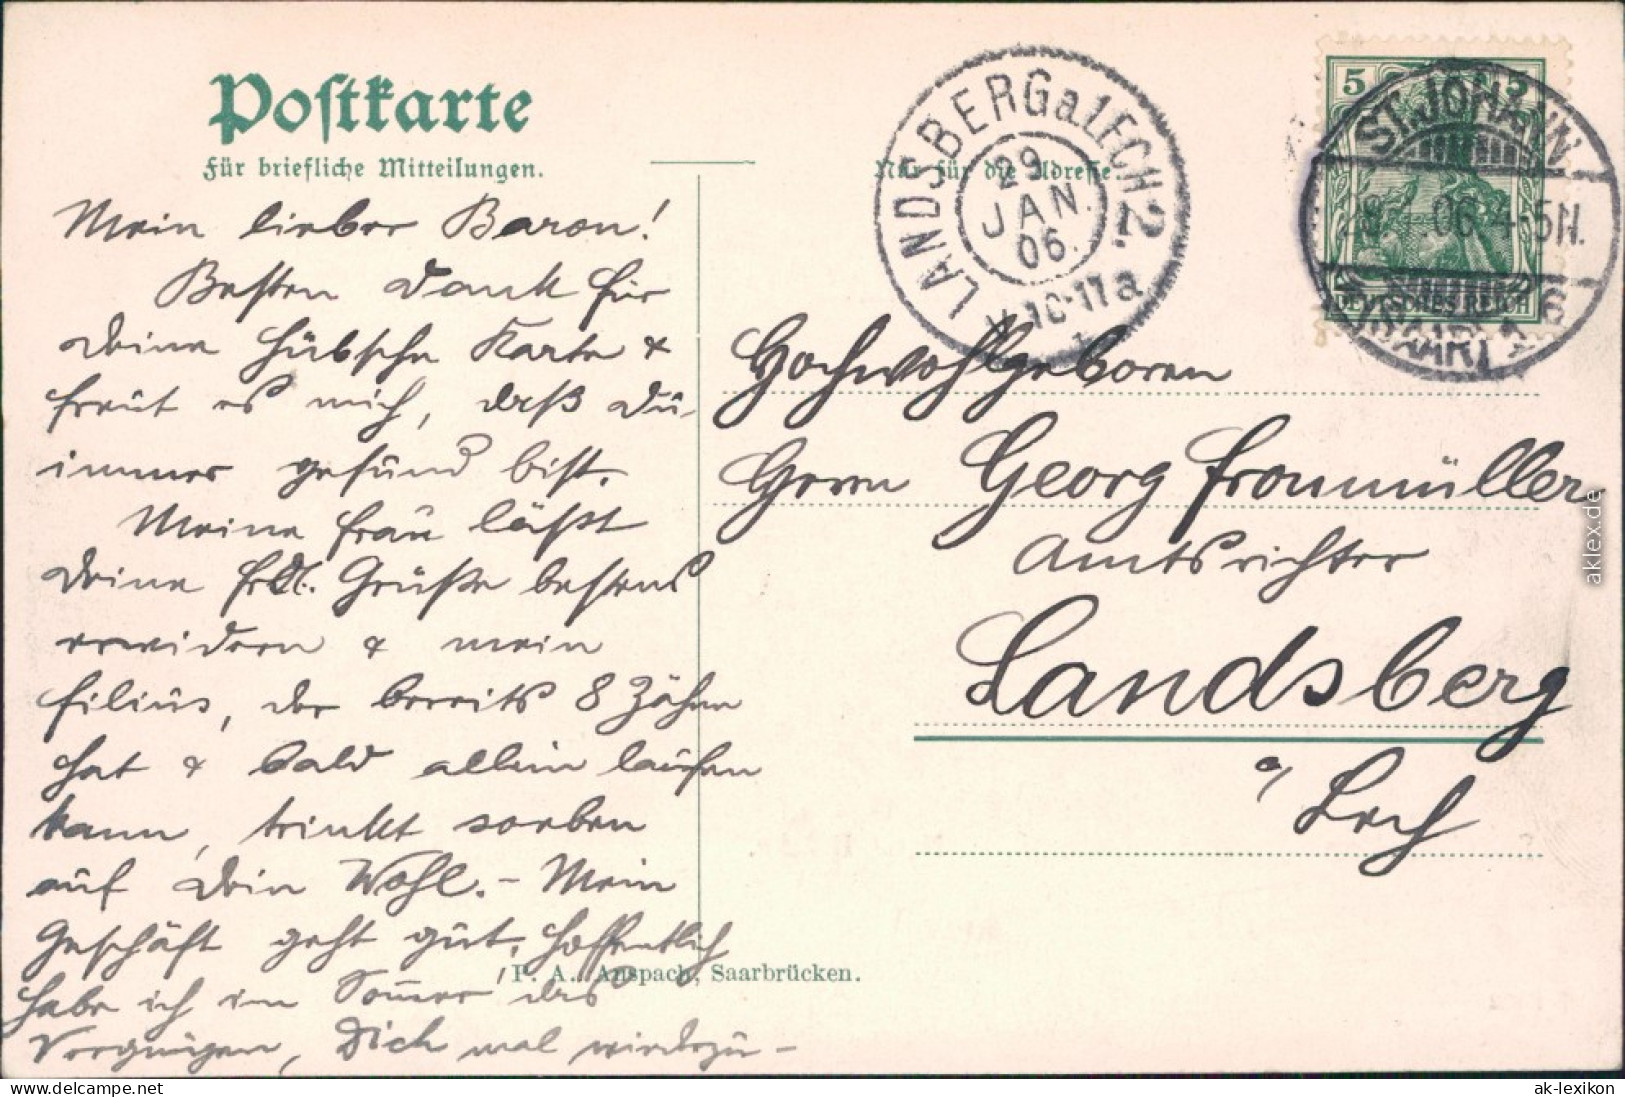 Postkarte
Für briefliche Mitteilungen.
Nur für die Adresse.
LANDSBERG a. LECH 2.
29
JAN.
06.
V. 10-11 a
5
ST. JOHANN
28.1.06. 4-5N.
(SAAR) 1 c
DEUTSCHES REICH
Mein lieber Baron!
Besten Dank für
Deine hübsche Karte &
freut es mich, daß Du
immer gesund bist.
Meine Frau läßt
Deine frdl. Grüße bestens
erwidern & mein
filius, der bereits 8 Zähne
hat & bald allein laufen
kann, trinkt soeben
auf Dein Wohl. - Mein
Geschäft geht gut, hoffentlich
habe ich im Som̅er das
Vergnügen, Dich mal wiederzu-
Hochwohlgeboren
Herrn Georg Fronmüller
Amtsrichter
Landsberg
a/ Lech
P. A. Anspach, Saarbrücken.
aklex.de
www.delcampe.net
ak-lexikon